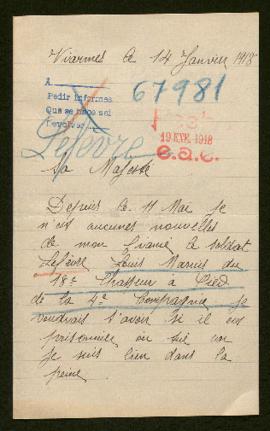 Viarmes le 14 Janvier 1918
67981
A
Pedir informes
Que se hace sal
Devolver
19 ENE. 1918
e.a.c.
Lefèvre
Sa Majesté
Depuis le 11 Mai je
n'ai aucunes nouvelles
de mon fiancé le soldat
Lefèvre Louis Marius du
18e Chasseur à Pied
de la 4e Compagnie je
voudrais s'avoir si il est
prisonnier ou
je suis bien dans la
peine